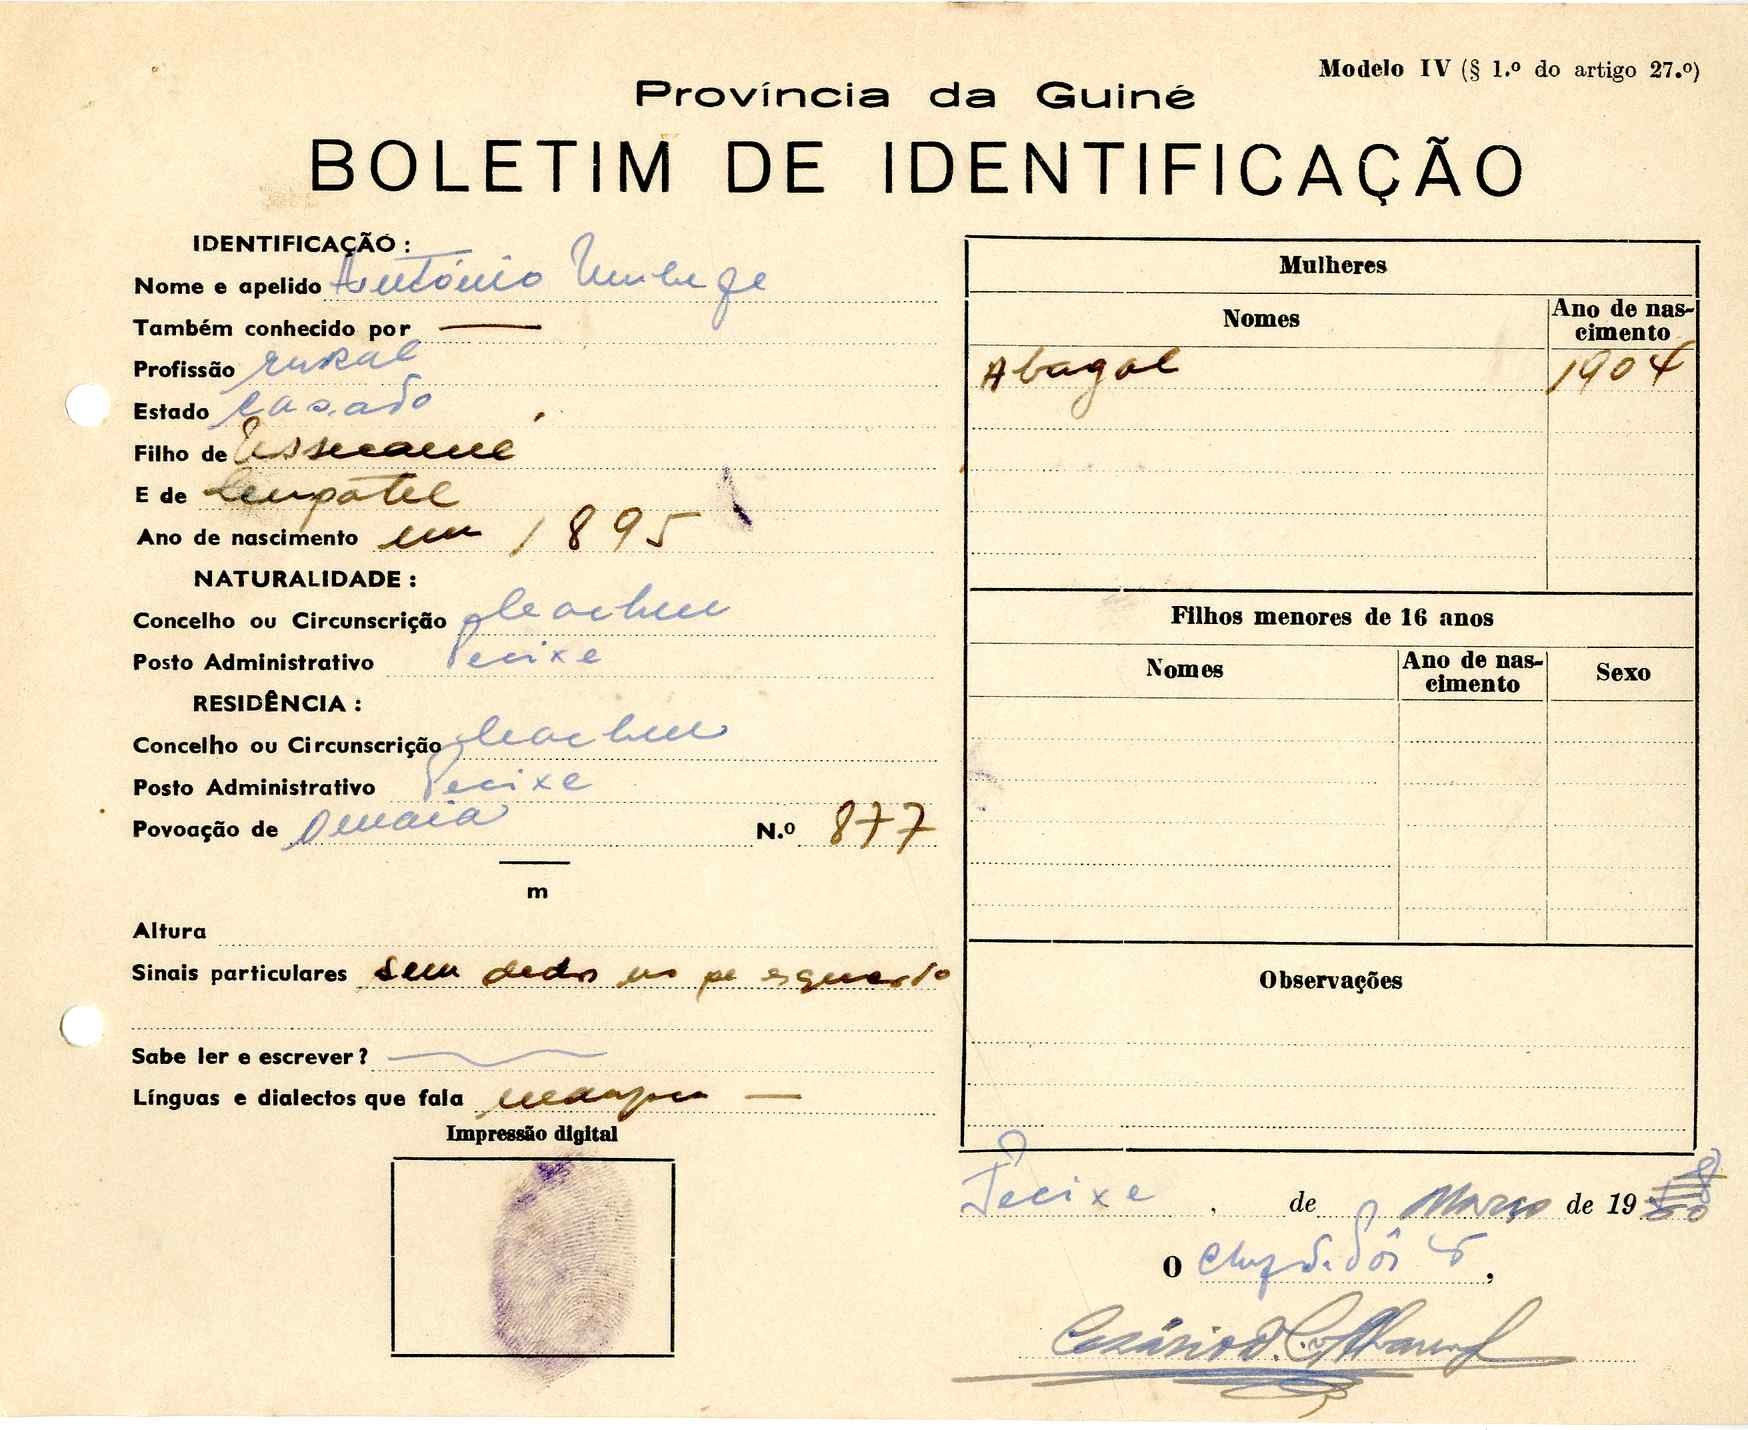 Modelo IV (§ 1.º do artigo 27.º)
Província da Guiné
BOLETIM DE IDENTIFICAÇÃO
IDENTIFICAÇÃO :
Nome e apelido António
Também conhecido por —
Profissão rural
Estado casado
Filho de
E de
Ano de nascimento em 1895
NATURALIDADE :
Concelho ou Circunscrição Cacheu
Posto Administrativo Pecixe
RESIDÊNCIA :
Concelho ou Circunscrição Cacheu
Posto Administrativo Pecixe
Povoação de N.º 877
m
Altura
Sinais particulares sem dedos no pe esquerdo
Sabe ler e escrever?
Línguas e dialectos que fala —
Impressão digital
Mulheres
Nomes Ano de nas-
cimento
Abagal 1904
Filhos menores de 16 anos
Nomes Ano de nas-
cimento Sexo
Observações
Pecixe , de Março de 19
O ,